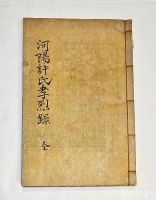 河陽許氏孝烈錄 全